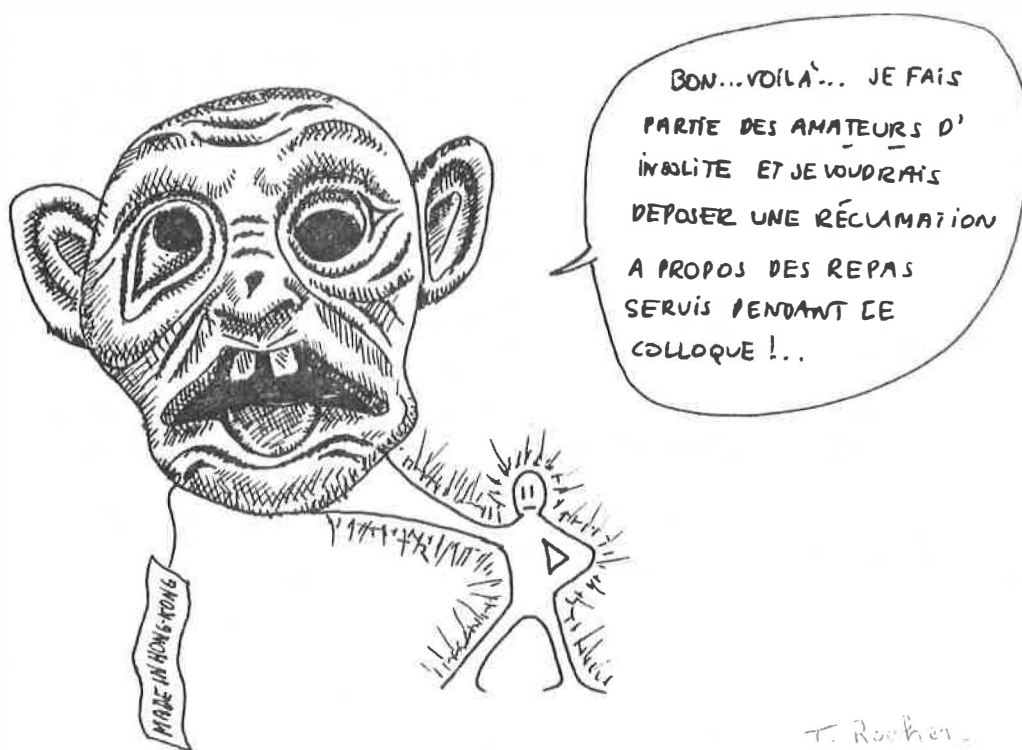 BON...VOILÀ... JE FAIS
PARTIE DES AMATEURS D'
INSOLITE ET JE VOUDRAIS
DEPOSER UNE RÉCLAMATION
A PROPOS DES REPAS
SERVIS PENDANT CE
COLLOQUE !..
MADE IN HONG-KONG
T.